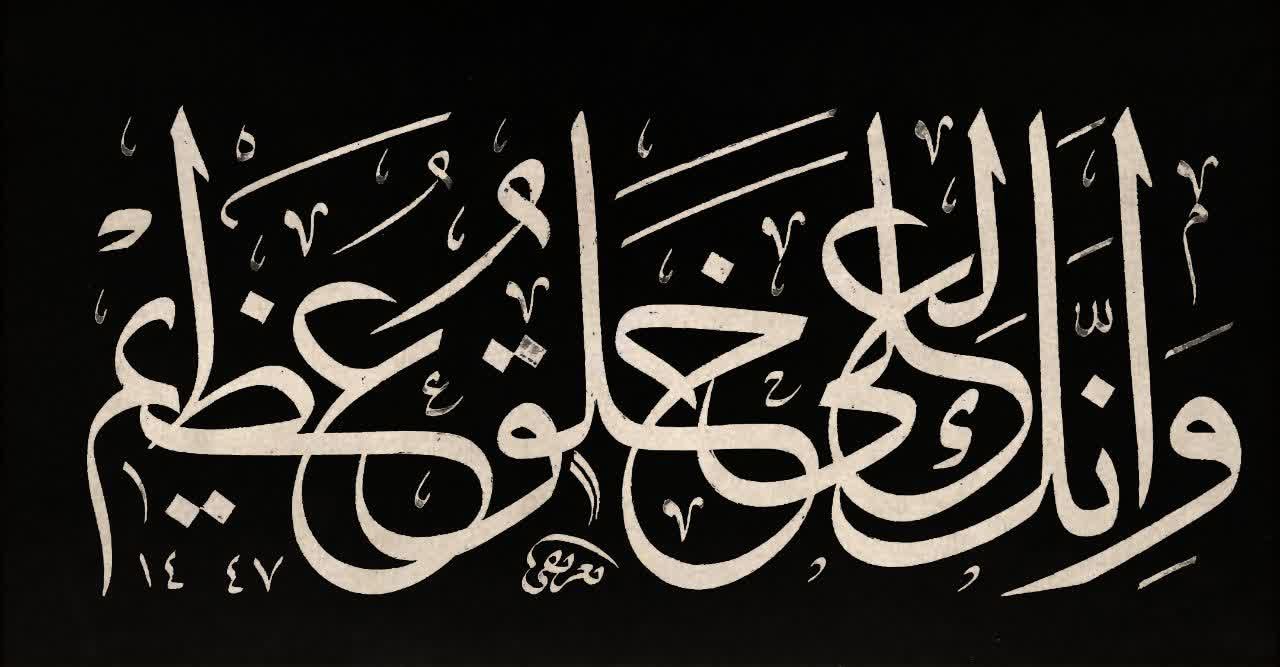 وَإِنَّكَ لَعَلَىٰ خُلُقٍ عَظِيمٍ
١٤٤٧